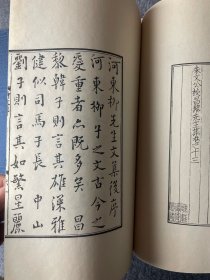 朱文公校昌黎先生集卷
河東柳先生文集後序
河東柳子之文古今之
愛重者亦既多矣昌
黎韓子則言其雄深雅
健似司馬子長中山
劉子則言其如繁星麗